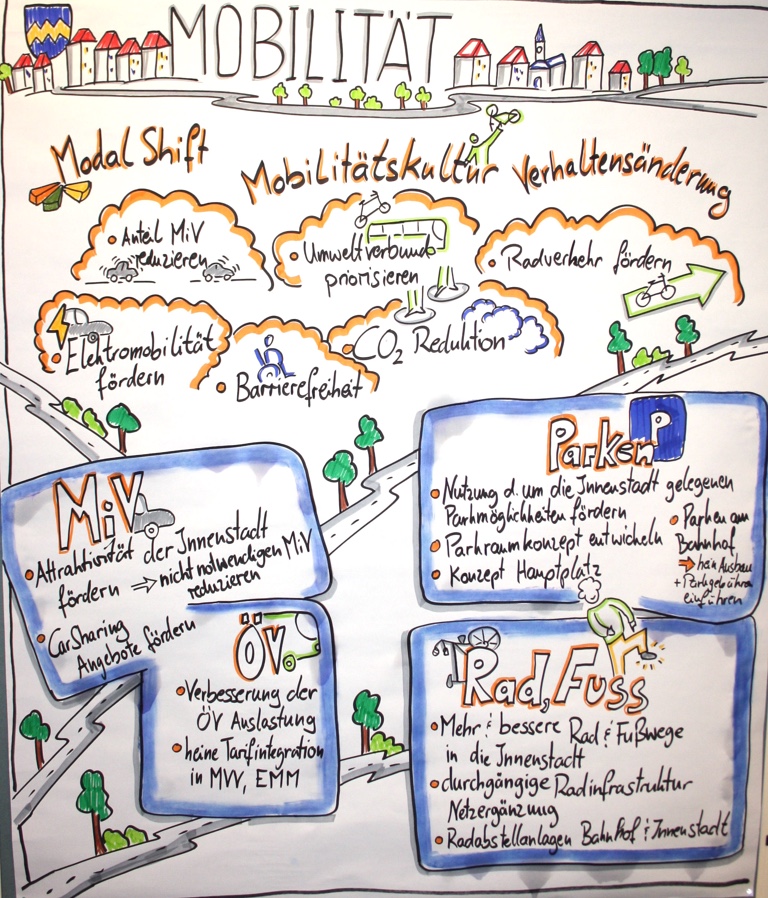 MOBILITÄT
Modal Shift
Mobilitätskultur Verhaltensänderung
• Anteil MiV
reduzieren
• Umweltverbund
priorisieren
• Radverkehr fördern
• Elektromobilität
fördern
• Barrierefreiheit
• CO2 Reduktion
MiV
• Attraktivität der Innenstadt
fördern ⇒ nicht notwendigen MiV
reduzieren
• CarSharing
Angebote fördern
ÖV
• Verbesserung der
ÖV Auslastung
• keine Tarifintegration
in MVV, EMM
Parken P
• Nutzung d. um die Innenstadt gelegenen
Parkmöglichkeiten fördern
• Parkraumkonzept entwickeln
• Konzept Hauptplatz
• Parken am
Bahnhof
⇒ kein Ausbau
+ Parkgebühren
einführen
Rad, Fuss
• Mehr & bessere Rad & Fußwege
in die Innenstadt
• durchgängige Radinfrastruktur
Netzergänzung
• Radabstellanlagen Bahnhof & Innenstadt